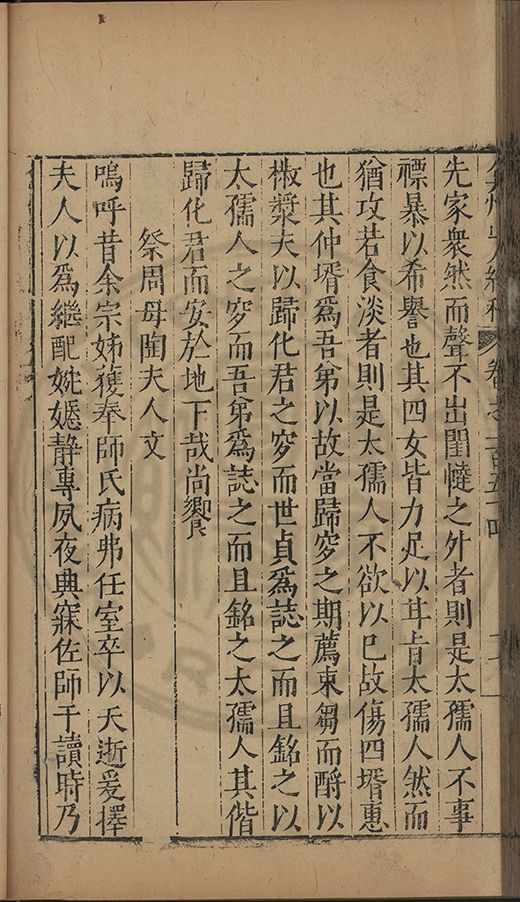 弇州山人續稿 卷之一百五十四
先家衆然而聲不出閨闥之外者則是太孺人不事
褾暴以希譽也其四女皆力足以甘旨太孺人然而
猶攻苦食淡者則是太孺人不欲以已故傷四壻惠
也其仲壻爲吾弟以故當歸窆之期薦束芻而酹以
椒漿夫以歸化君之窆而世貞爲誌之而且銘之以
太孺人之窆而吾弟爲誌之而且銘之太孺人其偕
歸化君而安於地下哉尚饗
祭周母陶夫人文
嗚呼昔余宗姊獲奉師氏病弗任室卒以夭逝爰擇
夫人以爲繼配婉嫕静專夙夜典寐佐師于讀時乃